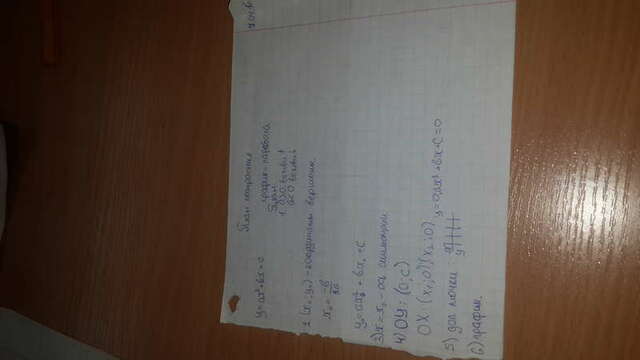 План построения
y=ax²+bx=0
график - парабола
План
1. a>0 ветви ↑
a<0 ветви ↓
2 (x₀; y₀) - координаты вершины
x₀ = -b/2a
y₀=ax₀² + bx₀ + c
3) x=x₀ - ось симметрии
4) OY: (0; c)
OX: (x₁;0)(x₂;0)
y=ax²+bx+c=0
5) доп точки x y
6) график.